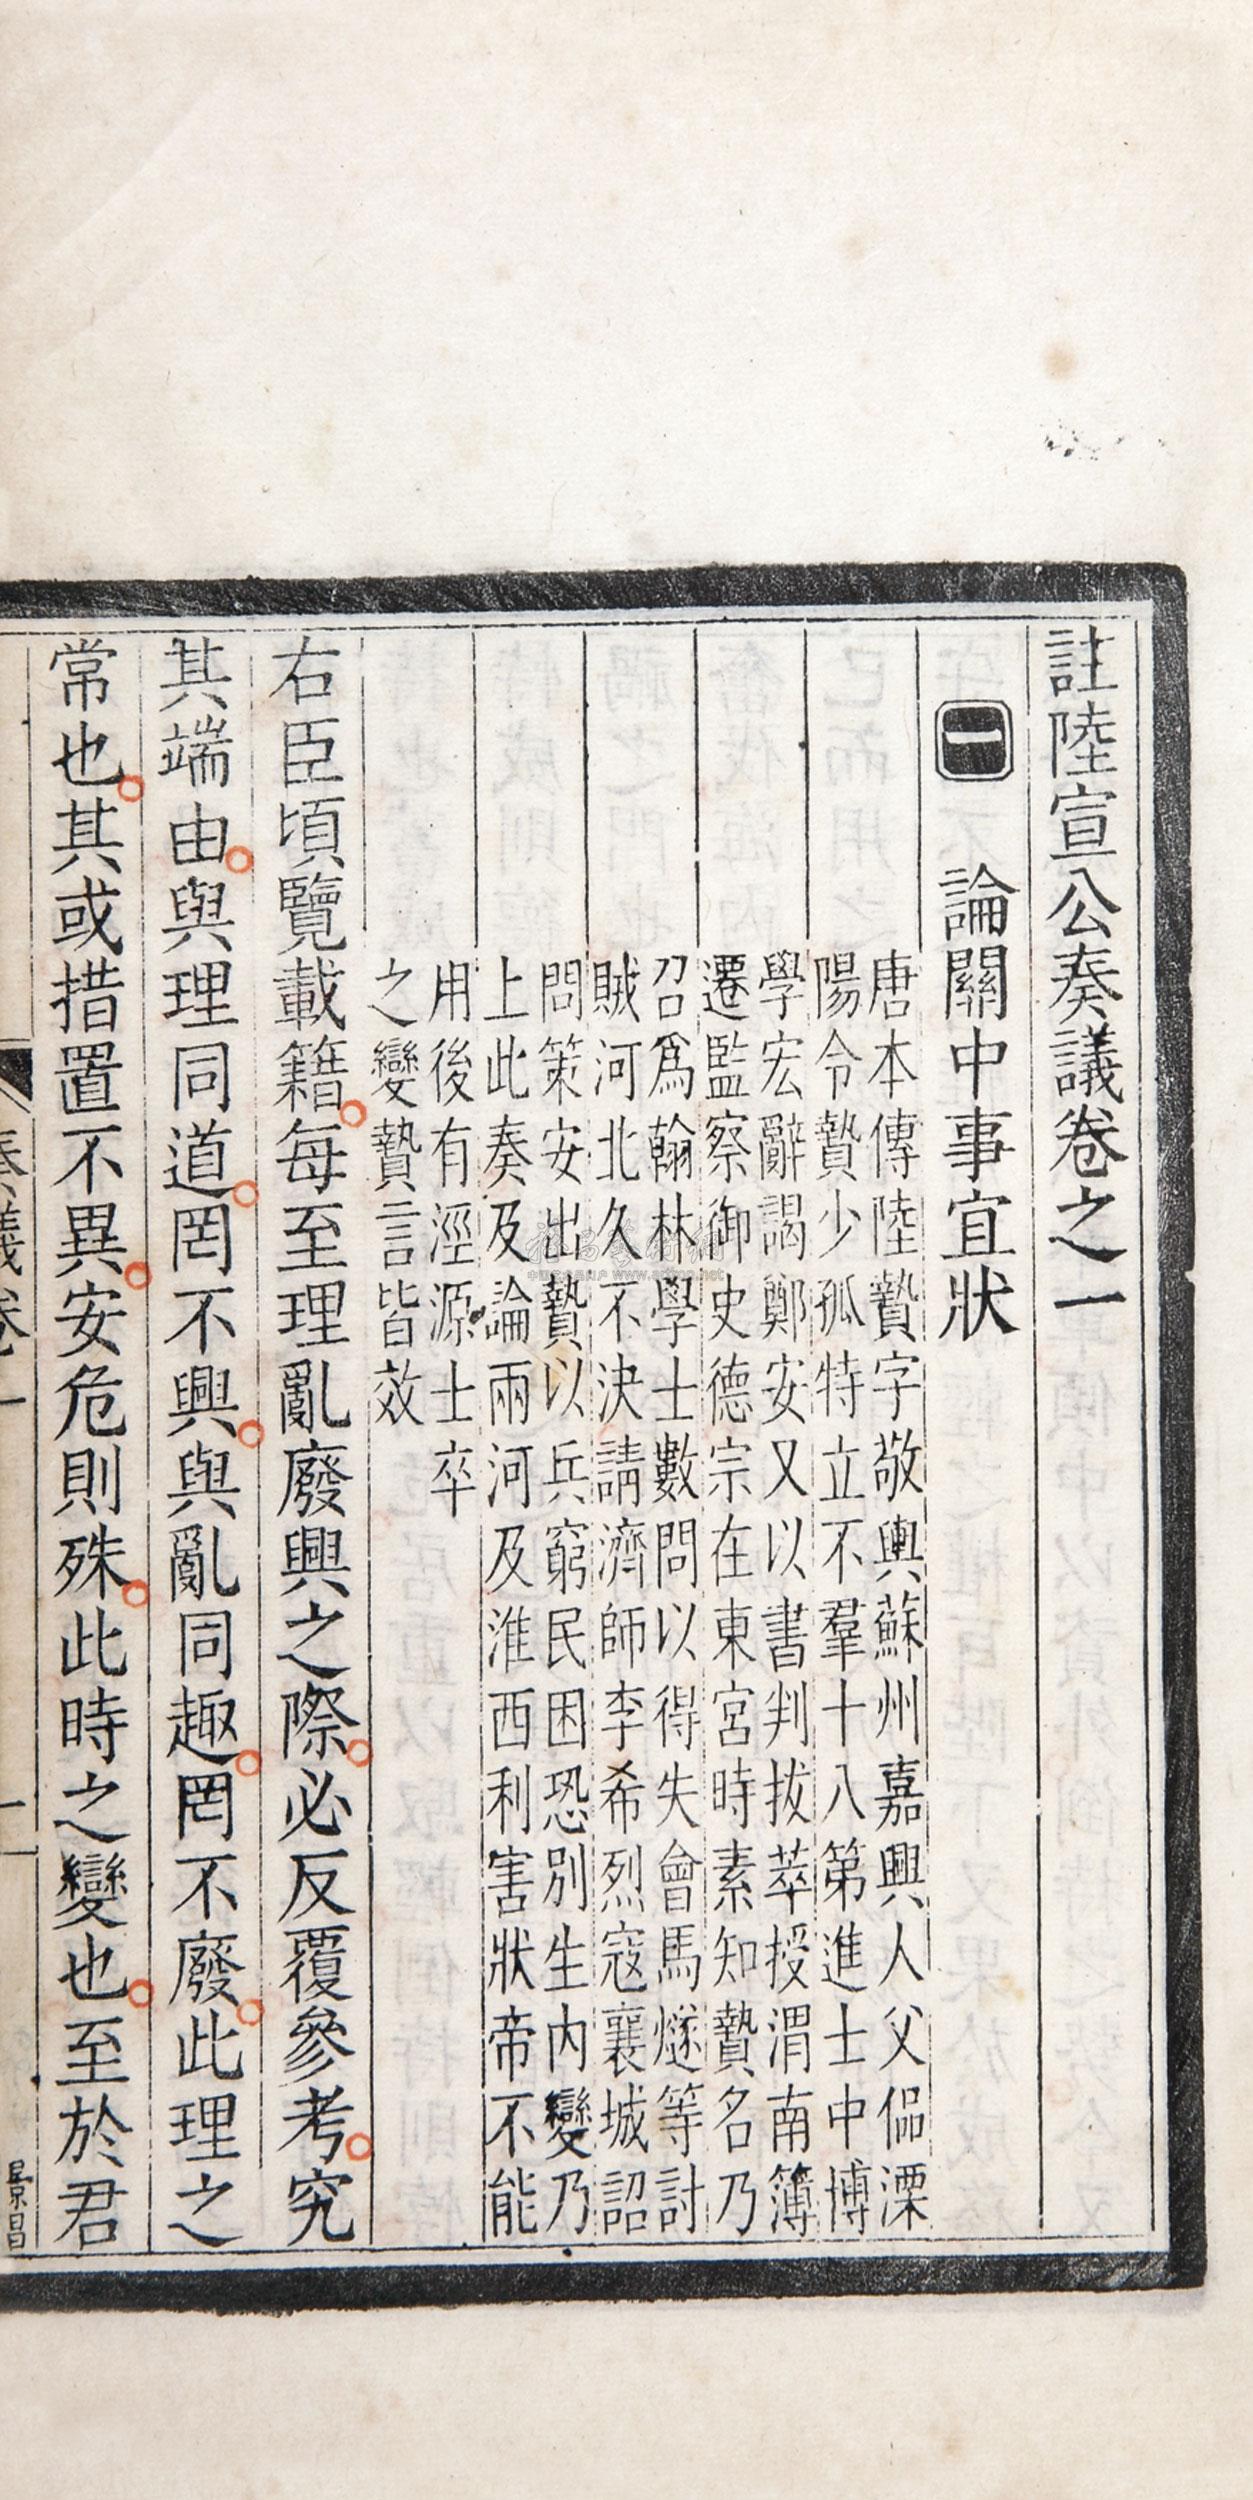 註陸宣公奏議卷之一
一 論關中事宜狀
唐本傳陸贄字敬輿蘇州嘉興人父偘溧
陽令贄少孤特立不羣十八第進士中博
學宏辭謁鄭安又以書判拔萃授渭南簿
遷監察御史德宗在東宮時素知贄名乃
召爲翰林學士數問以得失會馬燧等討
賊河北久不決請濟師李希烈寇襄城詔
問策安出贄以兵窮民困恐別生內變乃
上此奏及論兩河及淮西利害狀帝不能
用後有涇源士卒
之變贄言皆效
右臣頃覽載籍每至理亂廢興之際必反覆參考究
其端由與理同道罔不興與亂同趣罔不廢此理之
常也其或措置不異安危則殊此時之變也至於君
奏議卷一
一
景昌